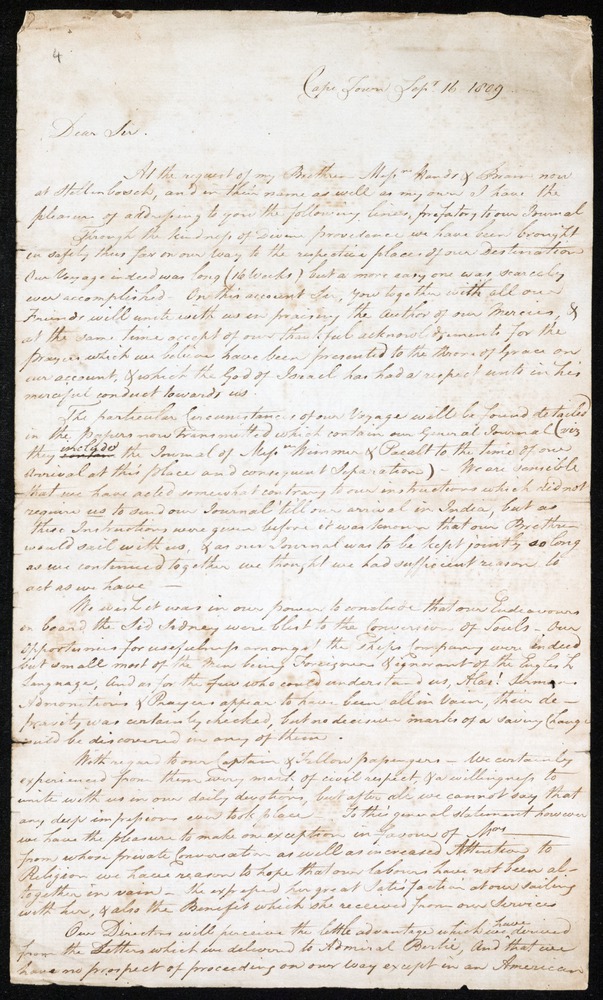 4
Cape Town Sepr 16 1809
Dear Sir.
At the request of my Brethren Messrs Hands & Brain now
at Stellinbosch, and in their name as well as my own I have the
pleasure of addressing to you the following lines, prefatory to our Journal
Through the kindness of Divine providence we have been brought
in safety thus far on our way to the respective places of our Destination
Our Voyage indeed was long (16 Weeks) but a more easy one was scarcely
ever accomplished - On this account Sir, you together with all our
Friends will unite with us in praising the Author of our Mercies, &
at the same time accept of our thankful acknowledgements for the
prayers which we believe have been presented to the throne of Grace on
our account, & which the God of Israel has had a respect unto in his
merciful conduct towards us
The particular Circumstances of our Voyage will be found detailed
in the papers now transmitted which contain our General Journal (viz
they include the Journal of Messrs Wimmer & Pacalt to the time of our
arrival at this place and consequent Separation) - We are sensible
that we have acted somewhat contrary to our instructions which did not
require us to send our Journal till our arrival in India, but as
these Instructions were given before it was known that our Brethren
would sail with us, & as our Journal was to be kept jointly so long
as we continued together we thought we had sufficient reason to
act as we have -
We wish it was in our power to conclude that our Endeavours
on board the Sir Sidney were blest to the Conversion of Souls - Our
opportunities for usefulness amongst the Ships Company were indeed
but small most of the Men being Foreigners & ignorant of the English
language, And as for the few who could understand us, Alas! Sermons
Admonitions & Prayers appear to have been all in vain, their de-
pravity was certainly checked, but no decisive marks of a saving Change
could be discovered in any of them.
With regard to our Captain & Fellow passengers - We certainly
experienced from them every mark of civil respect, & a willingness to
unite with us in our daily devotions, but after all we cannot say that
any deep impressions ever took place - To this general statement however
we have the pleasure to make an exception in favour of Mrs
from whose private Conversation as well as increased Attention to
Religion we have reason to hope that our labours have not been al-
together in vain - She expressed her great Satisfaction at our sailing
with her, & also the Benefit which she received from our Services
Our Directors will perceive the little advantage which we have derived
from the Letters which we delivered to Admiral Bertie, And that we
have no prospect of proceeding on our way except in an American